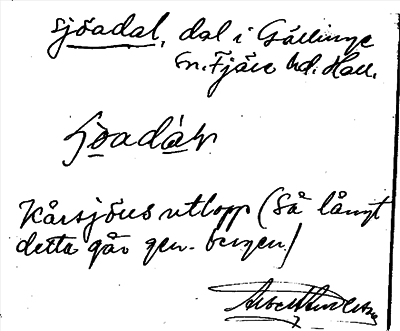 Sjöadal, dal i Gällinge
sn. Fjäre hd. Hall.
Kårsjöns utlopp (Så långt
detta går gen. bergen)